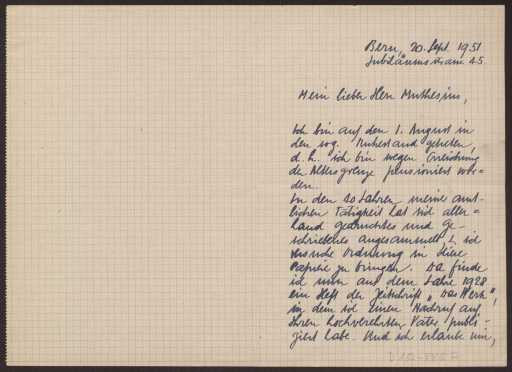 Bern, 20. Sept. 1951
Jubiläumsstrasse 45
Mein lieber Herr Muthesius,
Ich bin auf den 1. August in
den sog. Ruhestand getreten,
d. h. ich bin wegen Erreichung
der Altersgrenze pensioniert wor=
den.
In den 20 Jahren meiner amt-
lichen Tätigkeit hat sich aller=
hand gedrucktes und ge-
schriebenes angesammelt, & ich
versuche Ordnung in diese
Papiere zu bringen. Da finde
ich nun aus dem Jahre 1928
ein Heft der Zeitschrift „Das Werk",
in dem ich einen Nachruf auf
Ihren hochverehrten Vater publi-
ziert habe. Und ich erlaube mir,